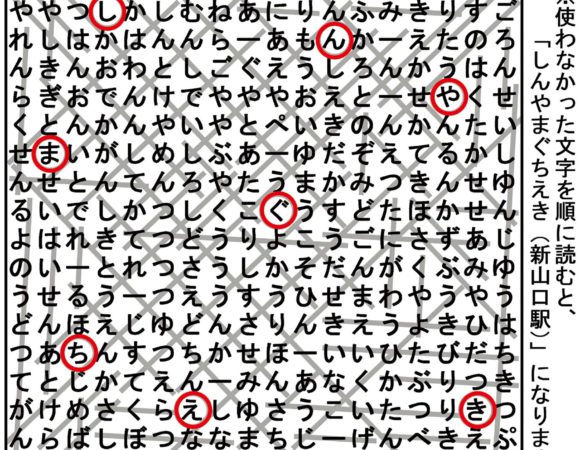 ややつしかしむねあにりんふみきりすご
れしはおはんんらーあもんかーえたのろ
んきんおわんしごぐえうしろんかうはん
らぎおでんけでやややおえとーせやくせ
くとんかんやいやとぺいきのんかんたい
せまいがしめしぶあーゆだぞえてるかし
んせとんてんろやたうまかみつきんせゆ
るいでしかつしくこぐうすどたほかせん
よはれきてつどうりよこうごにさずあじ
のいーとれつさうしかぞだんがくぶみゆ
うせるうーつえうすうひせまわやうやう
どんほえじゆどんさりんきえうよきひは
つあちんすつちかせほーいいひたびだち
てとじかてえんーみんあなくかぶりつき
がけめさくらえしゆさうこいたつりきつ
んらばしぼつななまちじーげんべきえぷ
使わなかった文字を順に読むと、
「しんやまぐちえき（新山口駅）」になりま